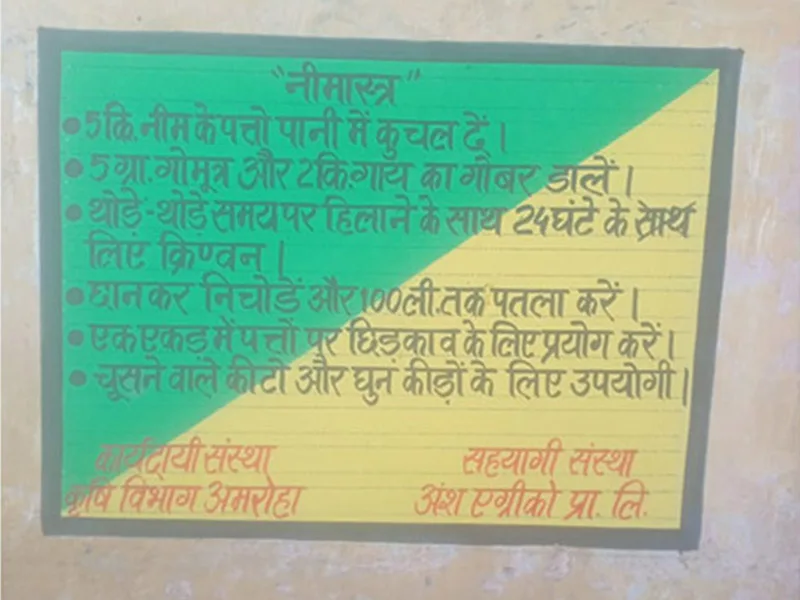 "नीमास्त्र"
●5 कि. नीम के पत्तो पानी में कुचल दें।
●5 ग्रा. गोमूत्र और 2 कि. गाय का गौबर डालें।
●थोड़े-थोड़े समय पर हिलाने के साथ 24 घंटे के साथ
लिए क्रिण्वन।
●छान कर निचोड़ें और 100 ली. तक पतला करें।
●एक एकड़ में पत्तों पर छिड़काव के लिए प्रयोग करें।
●चूसने वाले कीटों और घुन कीड़ों के लिए उपयोगी।
कार्यदायी संस्था सहयागी संस्था
कृषि विभाग अमरोहा अंश एग्रीको प्रा. लि.